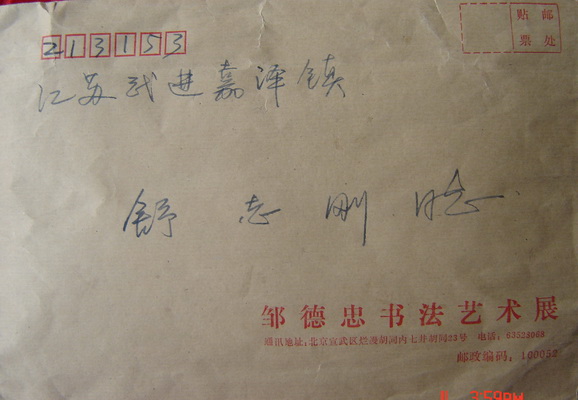 贴邮
票处
213153
江苏武进嘉泽镇
舒志刚 同志
邹德忠书法艺术展
通讯地址:北京宣武区烂漫胡同内七井胡同23号 电话:63523068
邮政编码:100052
2:59PM